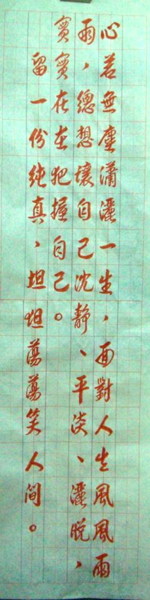 心若無塵瀟灑一生，面對人生風風雨
雨，總想壤自己沈靜、平淡、灑脫，
實實在在把握自己。
留一份純真，坦坦蕩蕩笑人間。